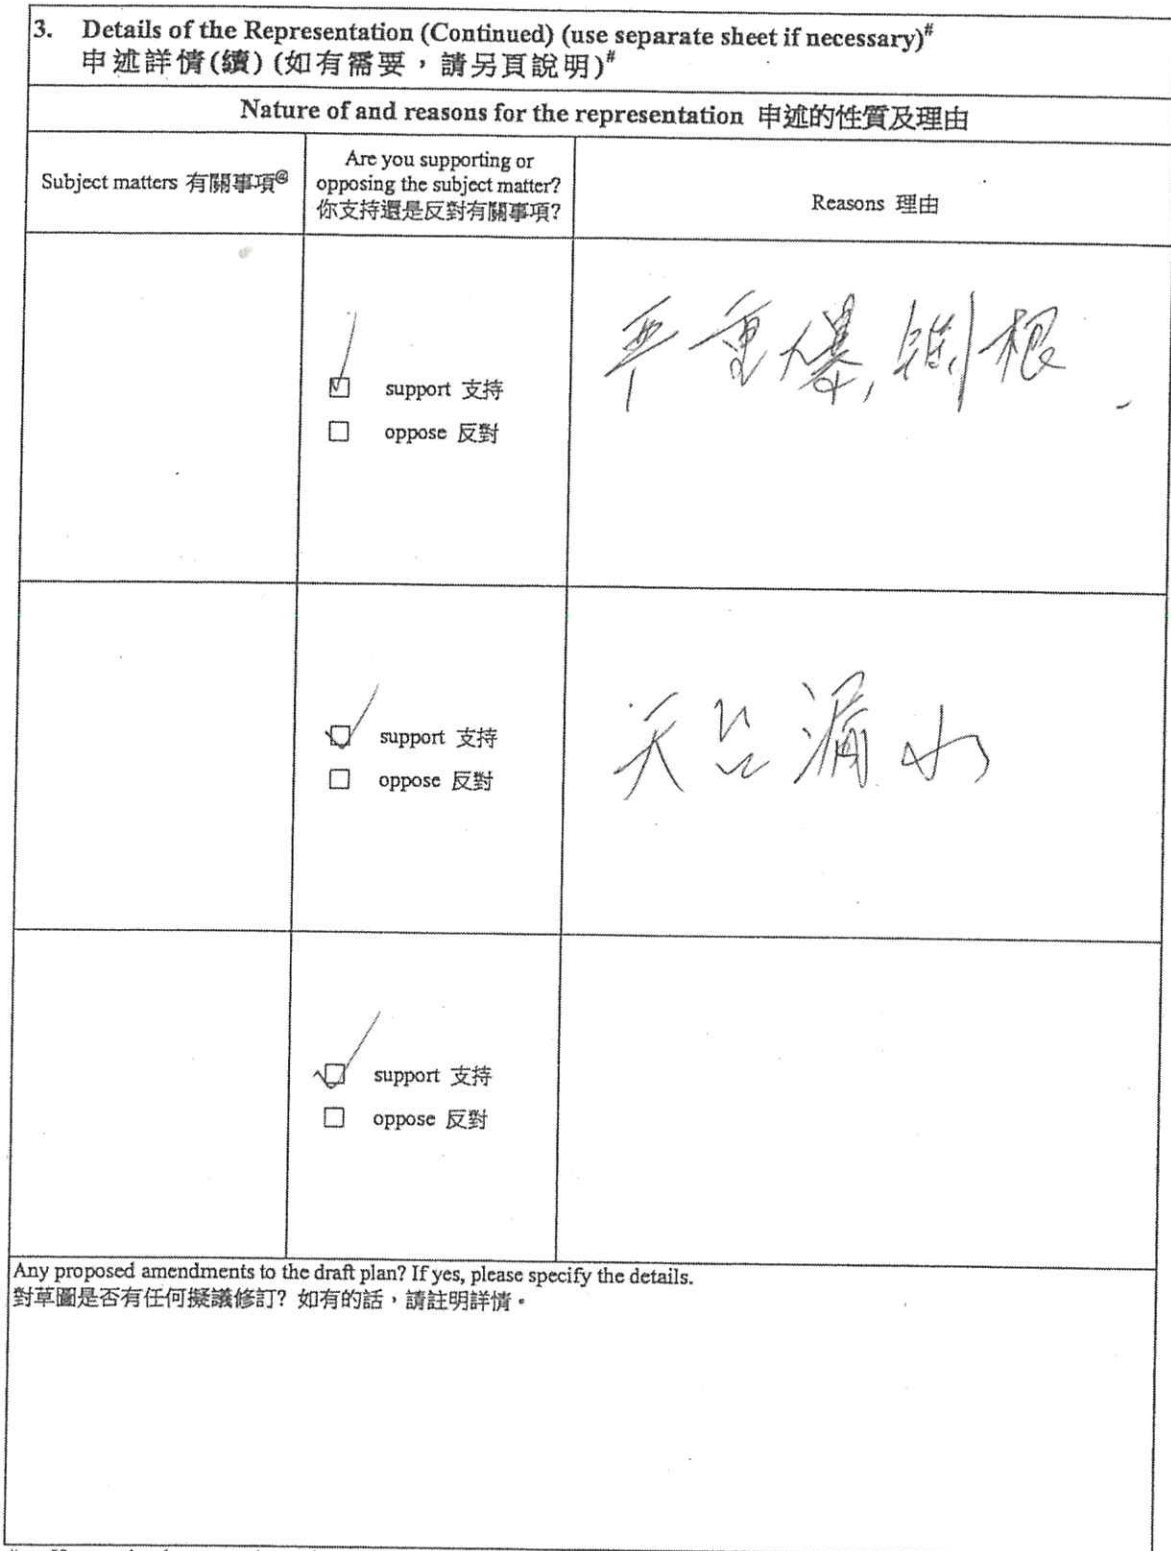 3. Details of the Representation (Continued) (use separate sheet if necessary)#
申述詳情(續) (如有需要，請另頁說明)#
Nature of and reasons for the representation 申述的性質及理由
Subject matters 有關事項@
Are you supporting or
opposing the subject matter?
你支持還是反對有關事項?
Reasons 理由
support 支持
oppose 反對
严重爆,
support 支持
oppose 反對
天台漏水
support 支持
oppose 反對
Any proposed amendments to the draft plan? If yes, please specify the details.
對草圖是否有任何擬議修訂? 如有的話，請註明詳情。